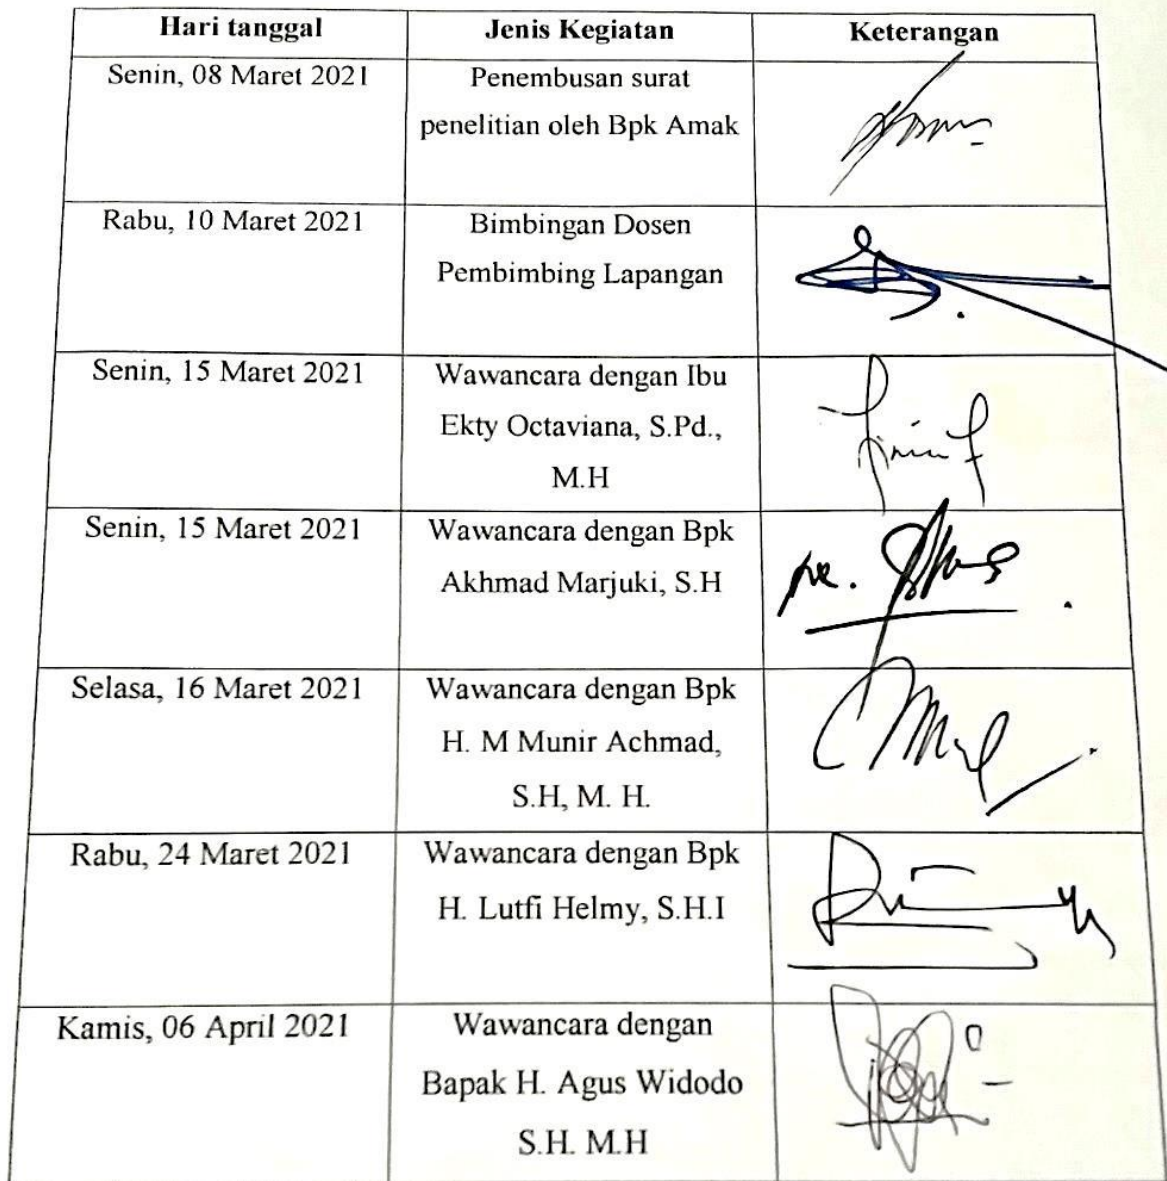 Hari tanggal
Jenis Kegiatan
Keterangan
Senin, 08 Maret 2021
Penembusan surat
penelitian oleh Bpk Amak
Rabu, 10 Maret 2021
Bimbingan Dosen
Pembimbing Lapangan
Senin, 15 Maret 2021
Wawancara dengan Ibu
Ekty Octaviana, S.Pd.,
M.H
Senin, 15 Maret 2021
Wawancara dengan Bpk
Akhmad Marjuki, S.H
Selasa, 16 Maret 2021
Wawancara dengan Bpk
H. M Munir Achmad,
S.H, M. H.
Rabu, 24 Maret 2021
Wawancara dengan Bpk
H. Lutfi Helmy, S.H.I
Kamis, 06 April 2021
Wawancara dengan
Bapak H. Agus Widodo
S.H. M.H